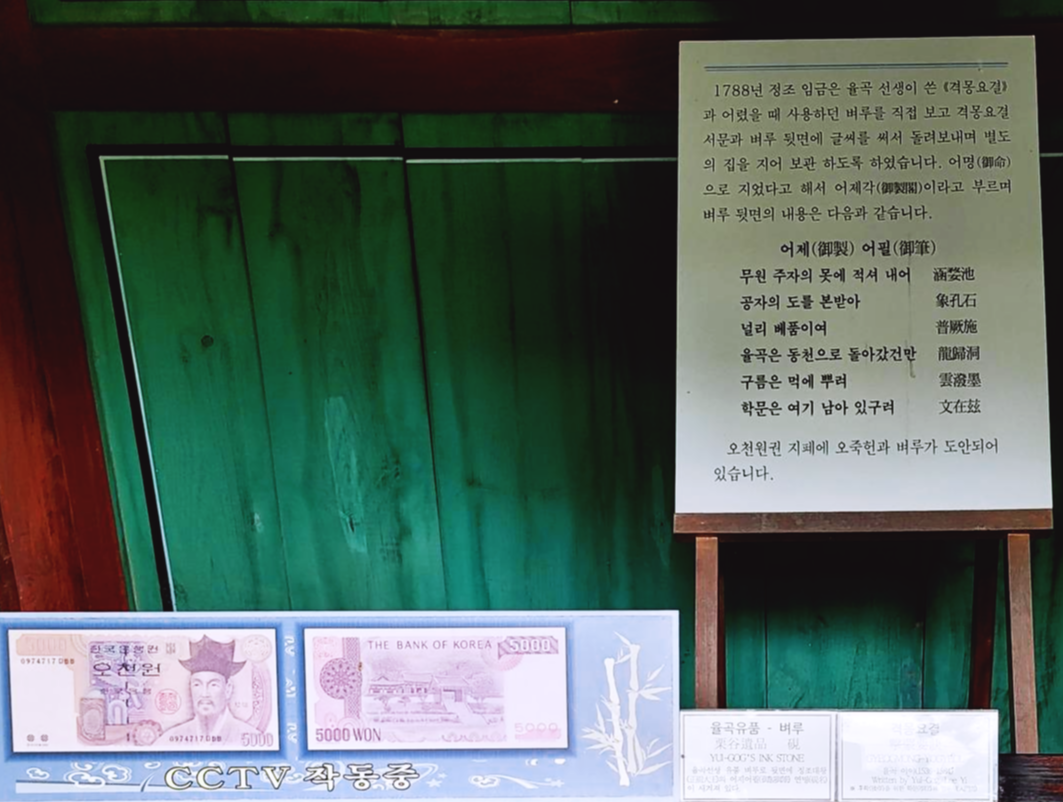 1788년 정조 임금은 율곡 선생이 쓴 《격몽요결》
과 어렸을 때 사용하던 벼루를 직접 보고 격몽요결
서문과 벼루 뒷면에 글씨를 써서 돌려보내며 별도
의 집을 지어 보관 하도록 하였습니다. 어명(御命)
으로 지었다고 해서 어제각(御製閣)이라고 부르며
벼루 뒷면의 내용은 다음과 같습니다.
어제(御製) 어필(御筆)
무원 주자의 못에 적셔 내어 涵婺池
공자의 도를 본받아 象孔石
널리 베품이여 普厥施
율곡은 동천으로 돌아갔건만 龍歸洞
구름은 먹에 뿌려 雲潑墨
학문은 여기 남아 있구려 文在玆
오천원권 지폐에 오죽헌과 벼루가 도안되어
있습니다.
한국은행권
0974717
오천원
한국은행
0974717
5000
THE BANK OF KOREA 5000
5000 WON 5000
CCTV 작동중
율곡유품 - 벼루
栗谷遺品 硯
YUL-GOG'S INK STONE